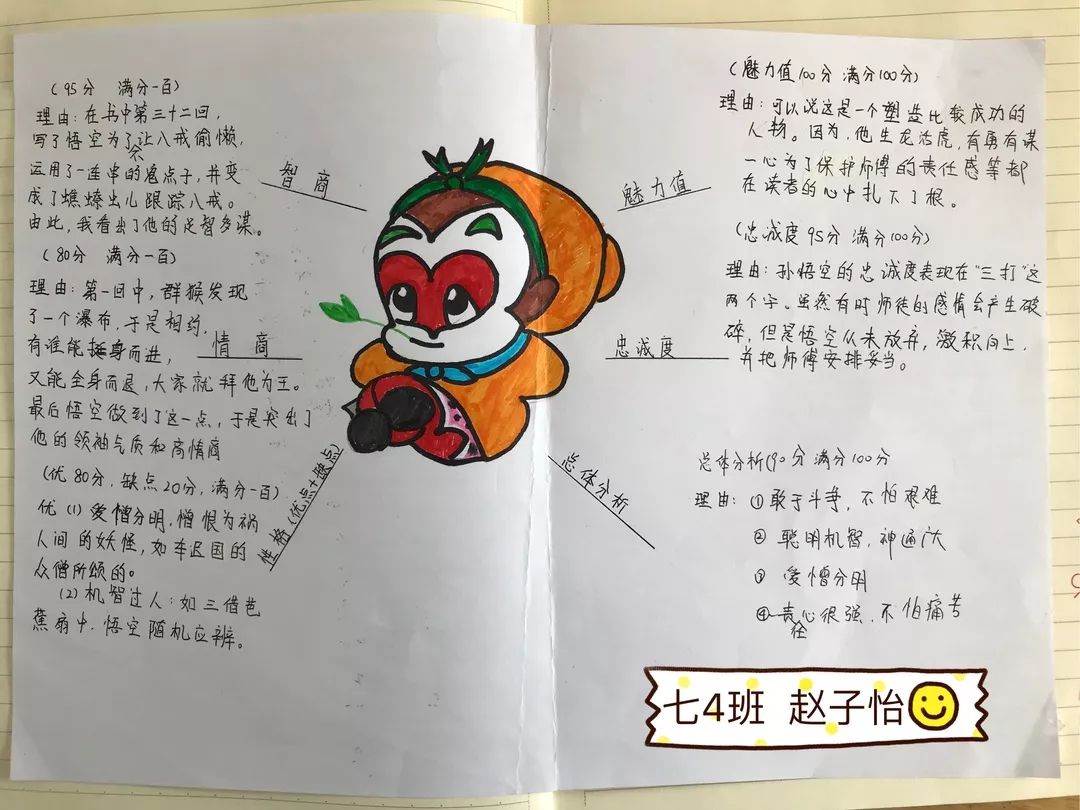 （95分 满分一百）
理由：在书中第三十二回，
写了悟空为了不让八戒偷懒，
运用了一连串的鬼点子，并变
成了蟭蟟虫儿跟踪八戒。
由此，我看出了他的足智多谋。
智商
（80分 满分一百）
理由：第一回中，群猴发现
了一个瀑布，于是相约，
有谁能挺身而进，
又能全身而退，大家就拜他为王。
最后悟空做到了这一点，于是突出了
他的领袖气质和高情商
情商
（优80分，缺点20分，满分一百）
优（1）爱憎分明，憎恨为祸
人间的妖怪，如车迟国的
众僧所颂的。
（2）机智过人：如三借芭
蕉扇中，悟空随机应辨。
性格（优点+缺点）
（魅力值100分 满分100分）
理由：可以说这是一个塑造比较成功的
人物。因为，他生龙活虎，有勇有谋
一心为了保护师傅的责任感等都
在读者的心中扎下了根。
魅力值
（忠诚度95分 满分100分）
理由：孙悟空的忠诚度表现在“三打”这
两个字。虽然有时师徒的感情会产生破
碎，但是悟空从未放弃，激积向上，
并把师傅安排妥当。
忠诚度
总体分析（90分 满分100分
理由：①敢于斗争，不怕艰难
②聪明机智，神通广大
③爱憎分明
④责任心很强，不怕痛苦
总体分析
七4班 赵子怡